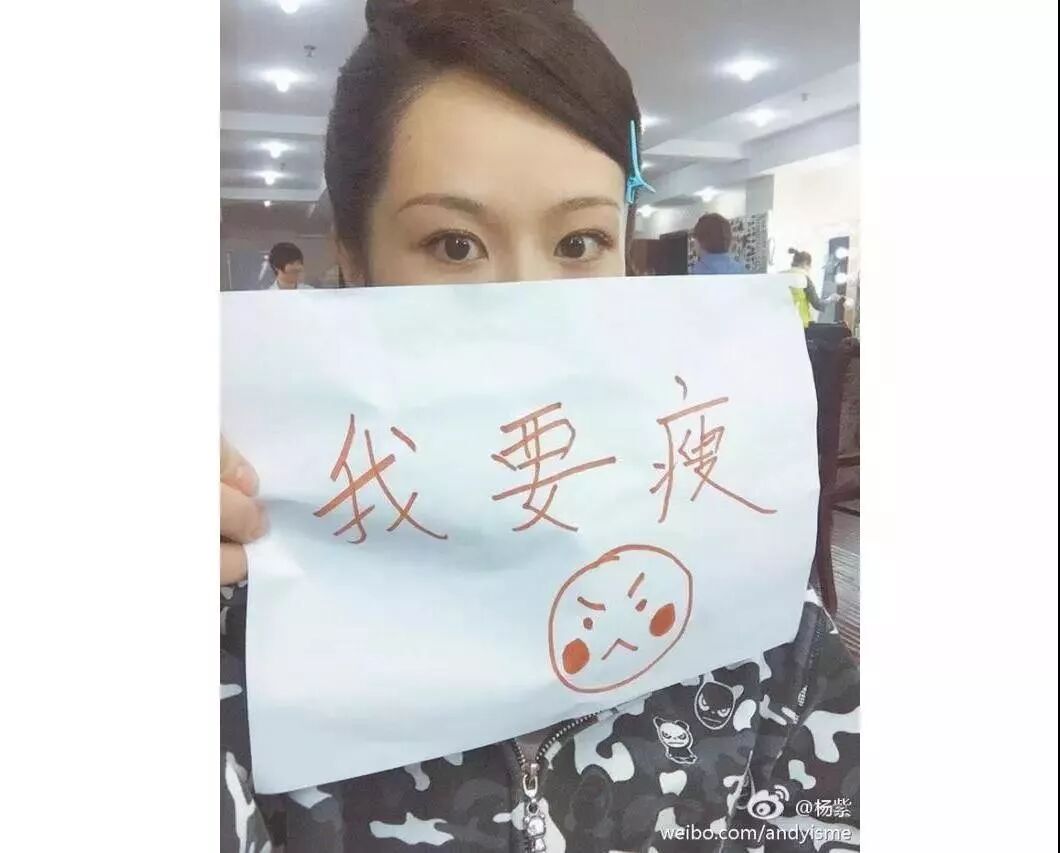 我要瘦
@杨紫
weibo.com/andyisme